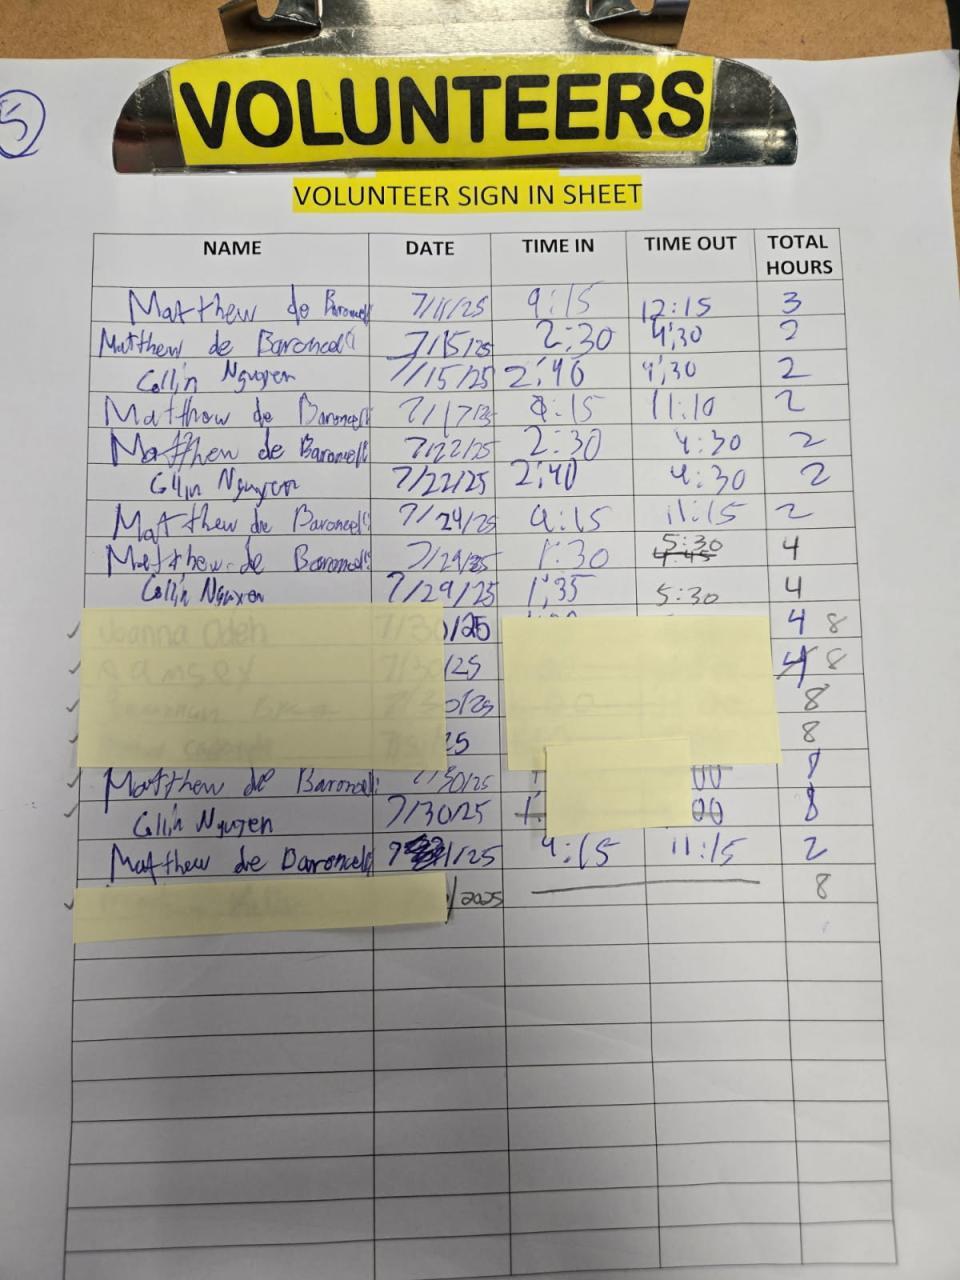 5
VOLUNTEERS
VOLUNTEER SIGN IN SHEET
NAME DATE TIME IN TIME OUT TOTAL HOURS
Matthew de 7/11/25 9:15 12:15 3
Matthew de Baroncelli 7/15/25 2:30 4:30 2
Collin Nguyen 7/15/25 2:40 4:30 2
Matthew de Baroncelli 7/17/25 :15 11:10 2
Matthew de Baroncelli 7/22/25 2:30 4:30 2
Collin Nguyen 7/22/25 2:40 4:30 2
Matthew de Baroncelli 7/24/25 9:15 11:15 2
Matthew de Baroncelli 7/29/25 1:30 5:30 4:45 4
Collin Nguyen 7/29/25 1:35 5:30 4
Joanna Odeh 7/30/25 4 8
7/30/25 4 8
/25 8
25 8
Matthew de Baroncelli 7/30/25 00 8
Collin Nguyen 7/30/25 1: 00 8
Matthew de Baroncelli 7/ /25 9:15 11:15 2
/2025 8